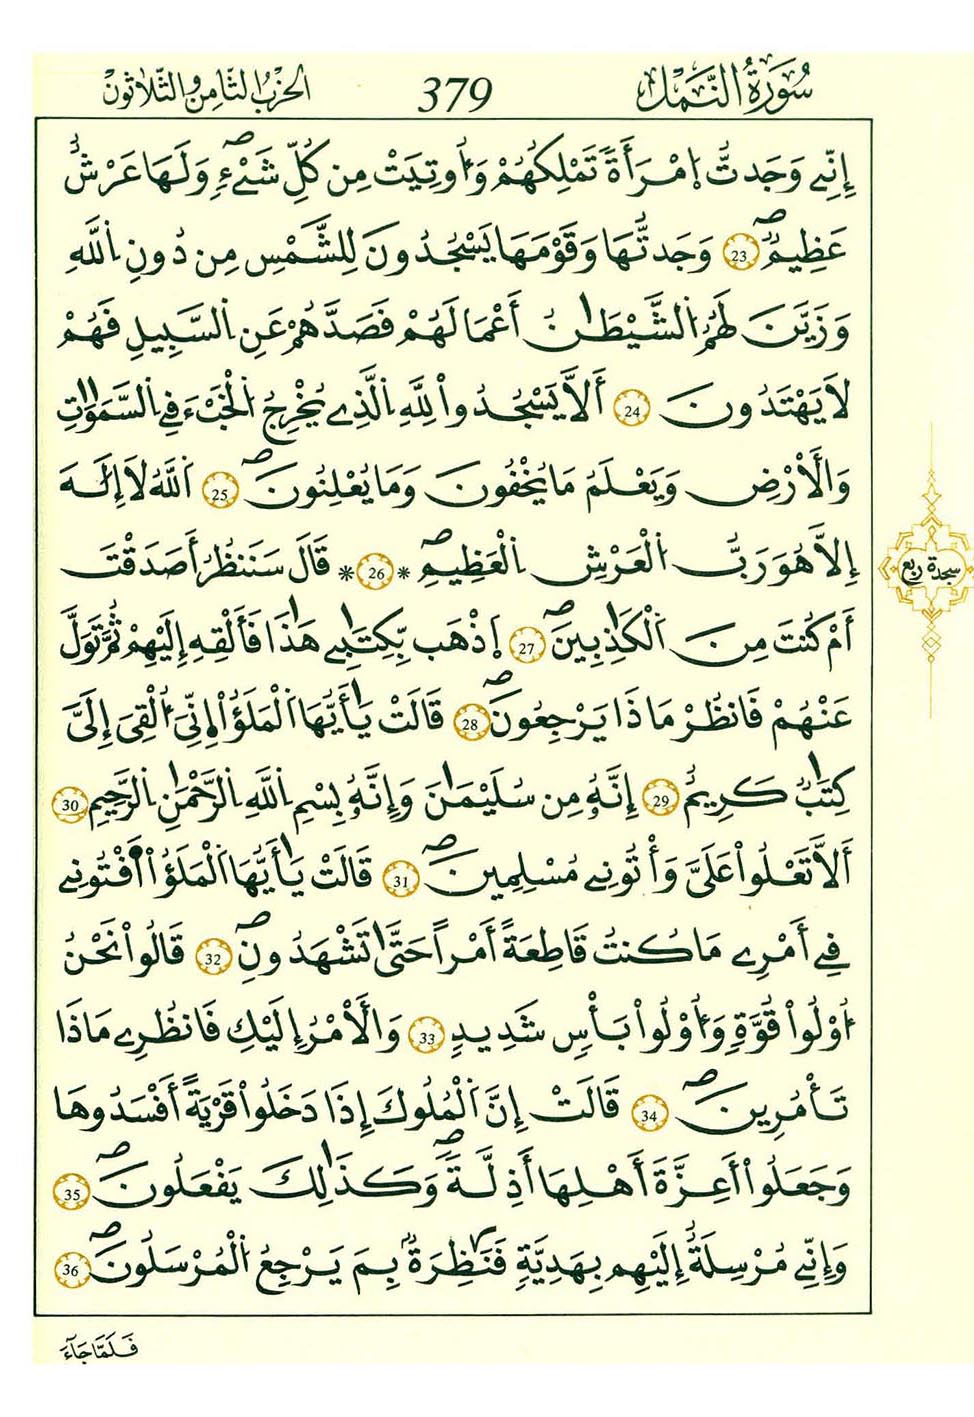 سُورَةُ النَّمْلِ 379 الحِزْبُ الثَّامِنُ وَالثَّلَاثُونَ
إِنِّے وَجَدتُّ اُ۪مْرَأَةٗ تَمْلِكُهُمْ وَأُوتِيَتْ مِن كُلِّ شَےْءٖ وَلَهَا عَرْشٌ
عَظِيمٞۖ 23 وَجَدتُّهَا وَقَوْمَهَا يَسْجُدُونَ لِلشَّمْسِ مِن دُونِ اِ۬للَّهِ
وَزَيَّنَ لَهُمُ اُ۬لشَّيْطَٰنُ أَعْمَالَهُمْ فَصَدَّهُمْ عَنِ اِ۬لسَّبِيلِ فَهُمْ
لَا يَهْتَدُونَ 24 أَلَّا يَسْجُدُواْ لِلَّهِ اِ۬لَّذِے يُخْرِجُ اُ۬لْخَبْءَ فِے اِ۬لسَّمَٰوَٰتِ
وَالْأَرْضِ وَيَعْلَمُ مَا يُخْفُونَ وَمَا يُعْلِنُونَۖ 25 اَ۬للَّهُ لَا إِلَٰهَ
إِلَّا هُوَ رَبُّ اُ۬لْعَرْشِ اِ۬لْعَظِيمِۖ * 26 * قَالَ سَنَنظُرُ أَصَدَقْتَ
سجدة ربع
أَمْ كُنتَ مِنَ اَ۬لْكَٰذِبِينَۖ 27 اَ۪ذْهَب بِّكِتَٰبِے هَٰذَا فَأَلْقِهِ إِلَيْهِمْ ثُمَّ تَوَلَّ
عَنْهُمْ فَانظُرْ مَاذَا يَرْجِعُونَۖ 28 قَالَتْ يَٰأَيُّهَا اَ۬لْمَلَؤُاْ اِ۪نِّيَ أُلْقِيَ إِلَيَّ
كِتَٰبٞ كَرِيمٌ 29 إِنَّهُۥ مِن سُلَيْمَٰنَ وَإِنَّهُۥ بِسْمِ اِ۬للَّهِ اِ۬لرَّحْمَٰنِ اِ۬لرَّحِيمِ 30
أَلَّا تَعْلُواْ عَلَيَّ وَأْتُونِے مُسْلِمِينَۖ 31 قَالَتْ يَٰأَيُّهَا اَ۬لْمَلَؤُاْ اَ۬فْتُونِے
فِے أَمْرِے مَا كُنتُ قَاطِعَةً أَمْراً حَتَّىٰ تَشْهَدُونِۖ 32 قَالُواْ نَحْنُ
أُوْلُواْ قُوَّةٖ وَأُوْلُواْ بَأْسٖ شَدِيدٖ 33 وَالْأَمْرُ إِلَيْكِ فَانظُرِے مَاذَا
تَأْمُرِينَۖ 34 قَالَتْ إِنَّ اَ۬لْمُلُوكَ إِذَا دَخَلُواْ قَرْيَةً أَفْسَدُوهَا
وَجَعَلُواْ أَعِزَّةَ أَهْلِهَا أَذِلَّةٗۖ وَكَذَٰلِكَ يَفْعَلُونَۖ 35
وَإِنِّے مُرْسِلَةٌ إِلَيْهِم بِهَدِيَّةٖ فَنَٰظِرَةُۢ بِمَ يَرْجِعُ اُ۬لْمُرْسَلُونَۖ 36
فَلَمَّا جَآءَ